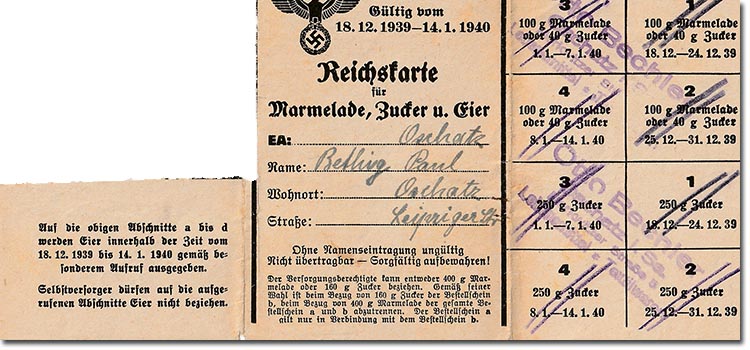 Gültig vom
18. 12. 1939 – 14. 1. 1940
Reichskarte
für
Marmelade, Zucker u. Eier
EA: Oschatz
Name: Paul
Wohnort: Oschatz
Straße: Leipziger Str
Ohne Namenseintragung ungültig
Nicht übertragbar – Sorgfältig aufbewahren!
Der Versorgungsberechtigte kann entweder 400 g Mar-
melade oder 160 g Zucker beziehen. Gemäß seiner
Wahl ist beim Bezug von 160 g Zucker der Bestellschein
b, beim Bezug von 400 g Marmelade der gesamte Be-
stellschein a und b abzutrennen. Der Bestellschein a
gilt nur in Verbindung mit dem Bestellschein b.
Auf die obigen Abschnitte a bis d
werden Eier innerhalb der Zeit vom
18. 12. 1939 bis 14. 1. 1940 gemäß be-
sonderem Aufruf ausgegeben.
Selbstversorger dürfen auf die aufge-
rufenen Abschnitte Eier nicht beziehen.
3
100 g Marmelade
oder 40 g Zucker
1. 1.–7. 1. 40
1
100 g Marmelade
oder 40 g Zucker
18. 12.–24. 12. 39
4
100 g Marmelade
oder 40 g Zucker
8. 1.–14. 1. 40
2
100 g Marmelade
oder 40 g Zucker
25. 12.–31. 12. 39
3
250 g Zucker
1. 1.–7. 1. 40
1
250 g Zucker
18. 12.–24. 12. 39
4
250 g Zucker
8. 1.–14. 1. 40
2
250 g Zucker
25. 12.–31. 12. 39